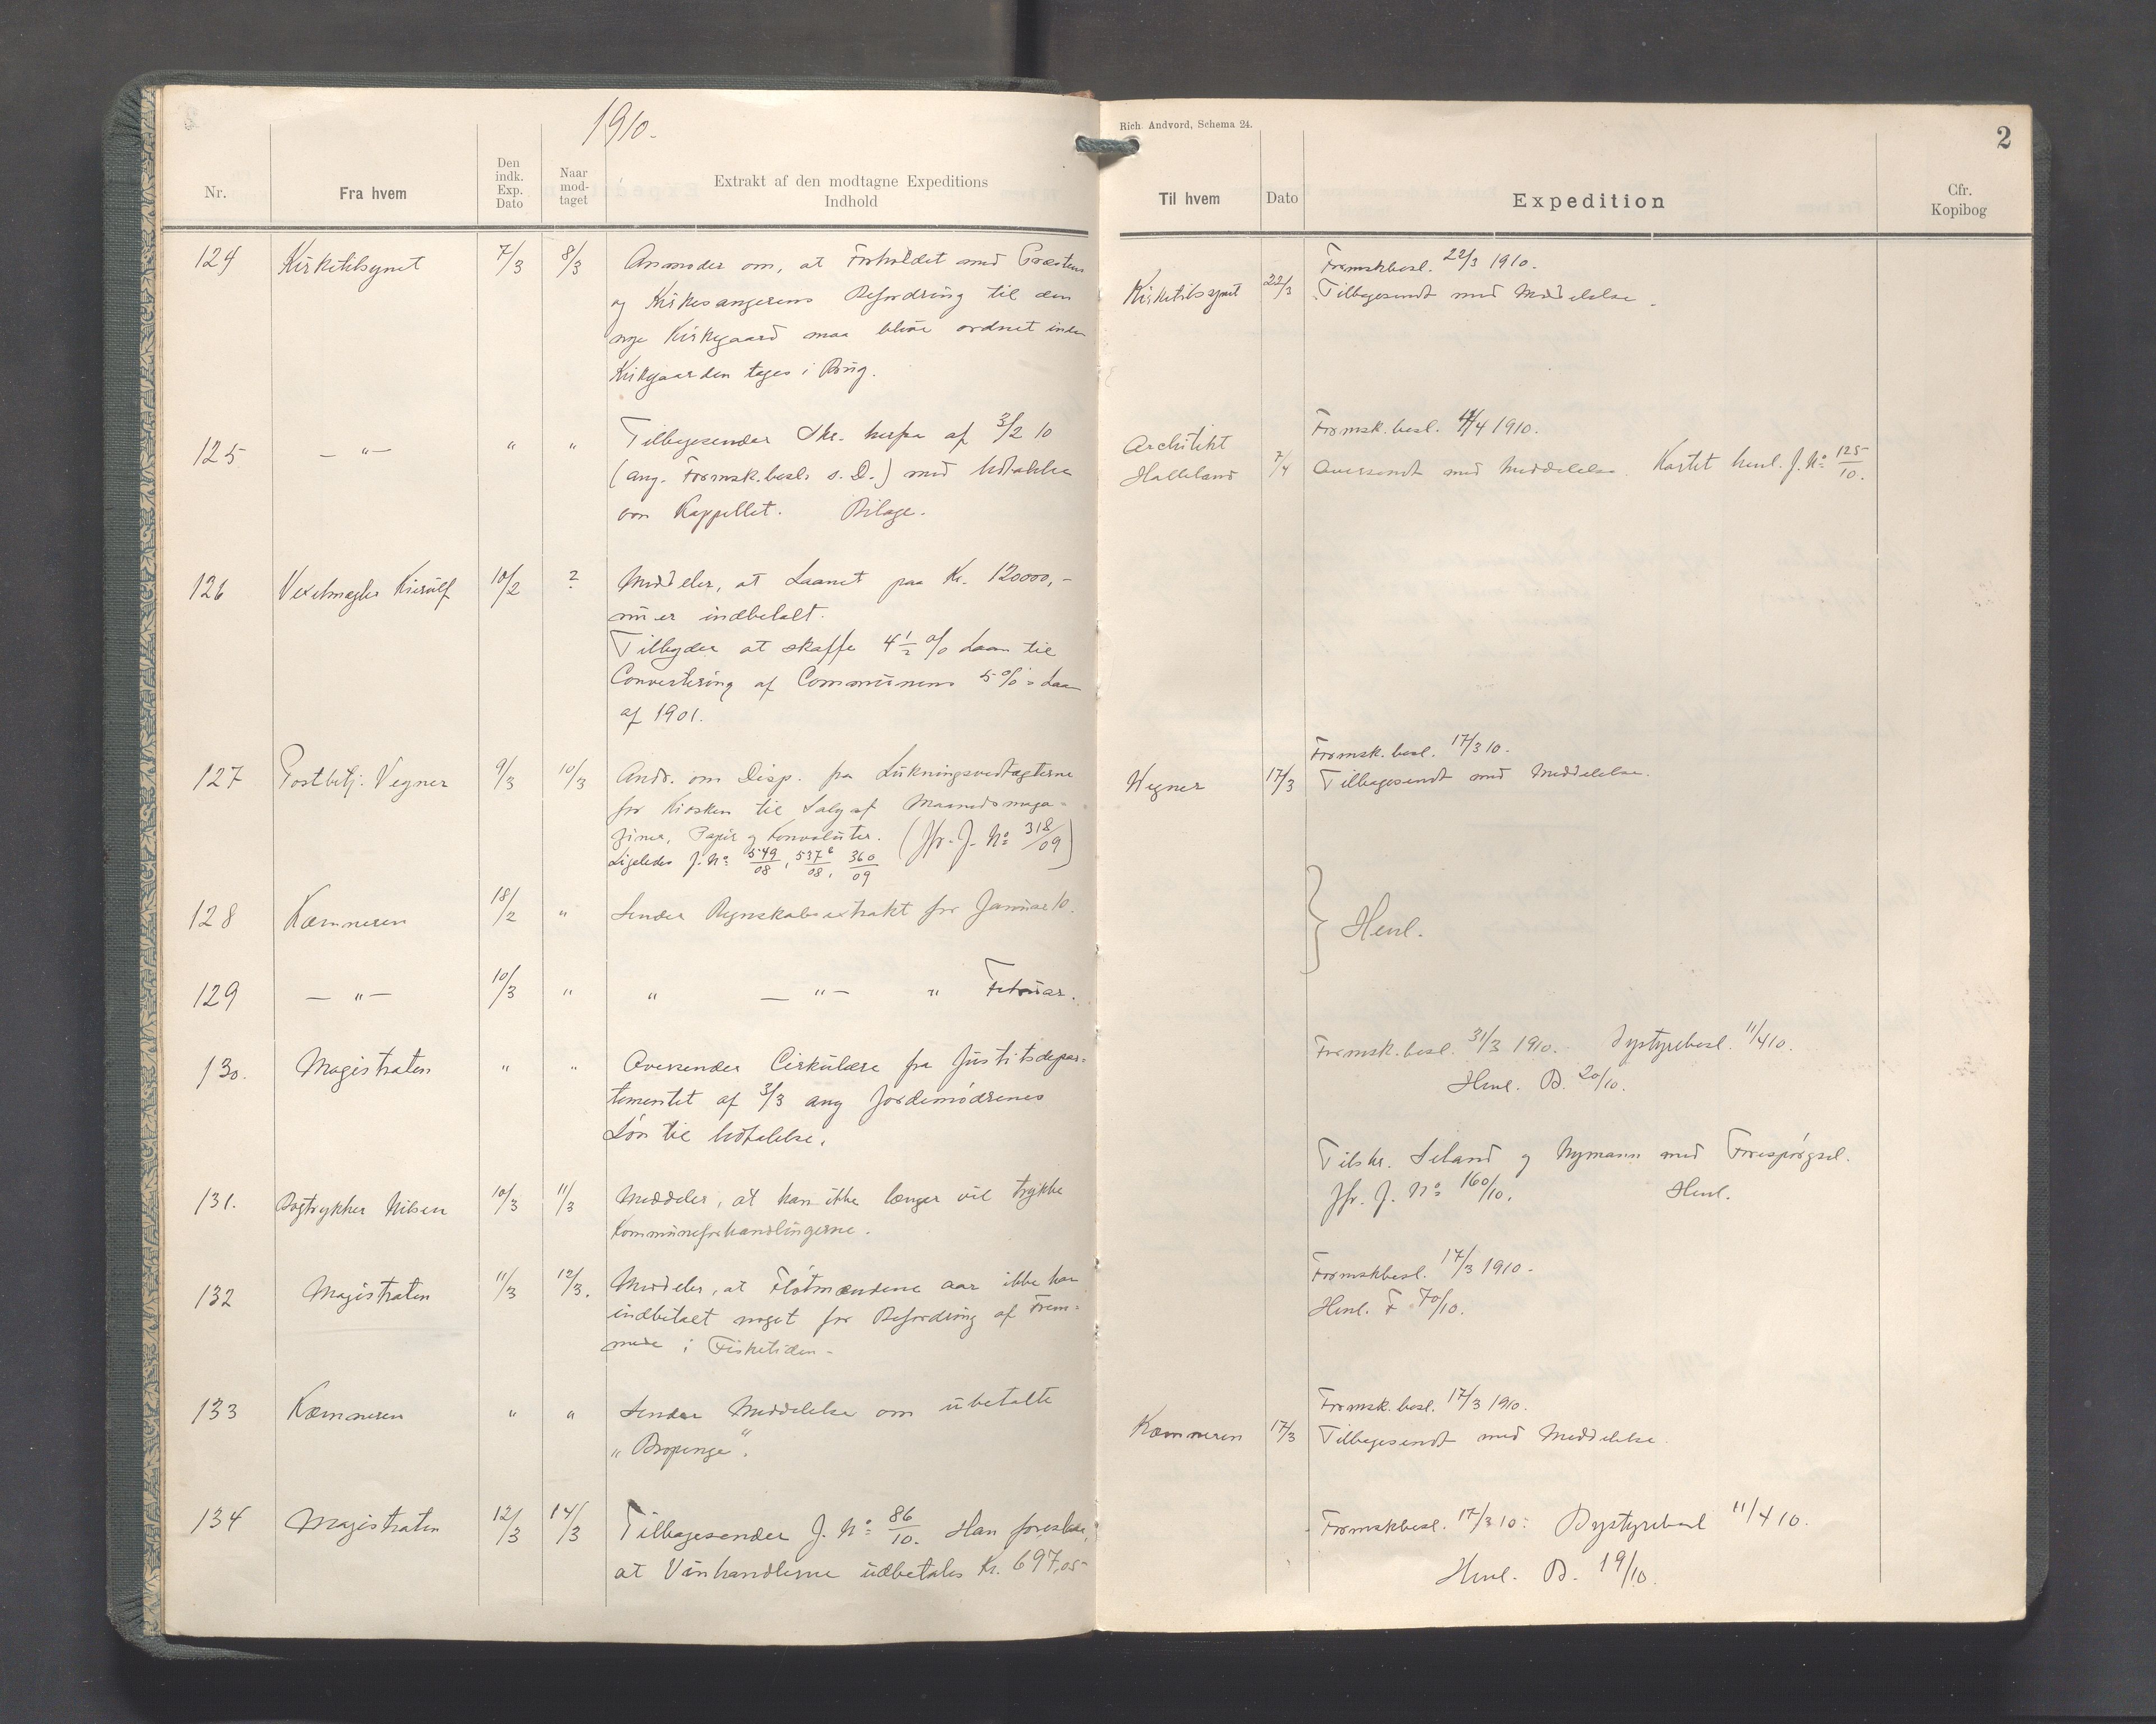 1910.
Nr.
Fra hvem
Den indk. Exp. Dato
Naar mod- taget
Extrakt af den modtagne Expeditions Indhold
124 Kirketilsynet 7/3 8/3 Anmoder om, at Forholdet med Præstens
og Kirkesangerens Befordring til den
nye Kirkegaard maa blive ordnet inden
Kirkegaarden tages i Brug.
125 — " — " " Tilbagesender Skr. herfra af 3/2 10
(ang. Formsk.besl. s. D.) med Udtalelse
om Kappellet. Bilage.
126 Vexelmægler Kierulf 10/2 ? Meddeler, at Laanet paa Kr. 120000,-
nu er indbetalt.
Tilbyder at skaffe 4 1/2 % Laan til
Convertering af Communens 5 %s Laan
af 1901.
127 Postbetj. Vegner 9/3 10/3 Andr. om Disp. fra Lukningsvedtægterne
for Kiosken til Salg af Maanedsmaga-
ziner, Papir og Konvoluter. (Jfr. J. No 318/09)
Ligeledes J. No 549/08, 537b/08, 360/09
128 Kæmneren 18/2 " Sender Regnskabsextrakt for Januar 10.
129 — " — 10/3 " " — " — " Februar.
130. Magistraten " " Oversender Cirkulære fra Justitsdepar=
tementet af 3/3 ang Jordemødrenes
Løn til Udtalelse.
131. Bogtrykker Nilsen 10/3 11/3 Meddeler, at han ikke længer vil trykke
Kommuneforhandlingerne.
132 Magistraten 11/3 12/3. Meddeler, at Fløtmændene aar ikke har
indbetalt noget for Befordring af Frem=
mede i Fisketiden.
133 Kæmneren " " Sender Meddelelse om ubetalte
"Bropenge".
134 Magistraten 12/3 14/3 Tilbagesender J. No 86/10. Han foreslaar,
at Vinhandlerne udbetales Kr. 697,05
Rich. Andvord, Schema 24.
2
Til hvem
Dato
Expedition
Cfr. Kopibog
Formskbesl. 22/3 1910.
Kirketilsynet 22/3 Tilbagesendt med Meddelelse.
Formsk.besl. 4/4 1910.
Architekt
Halleland 7/4 Oversendt med Meddelelse. Kartet henl. J. No 125/10.
Formsk.besl. 17/3 10.
Wegner 17/3 Tilbagesendt med Meddelelse.
Henl.
Formsk.besl. 31/3 1910. Bystyrebesl. 11/4 10.
Henl. B. 20/10.
Tilskr. Seland og Nymann med Forespørgsel.
Jfr. J. No 160/10. Henl.
Formskbesl. 17/3 1910.
Henl. F 70/10.
Formsk.besl. 17/3 1910.
Kæmneren 17/3 Tilbagesendt med Meddelelse.
Formskbesl. 17/3 10. Bystyrebesl 11/4 10.
Henl. B. 19/10.